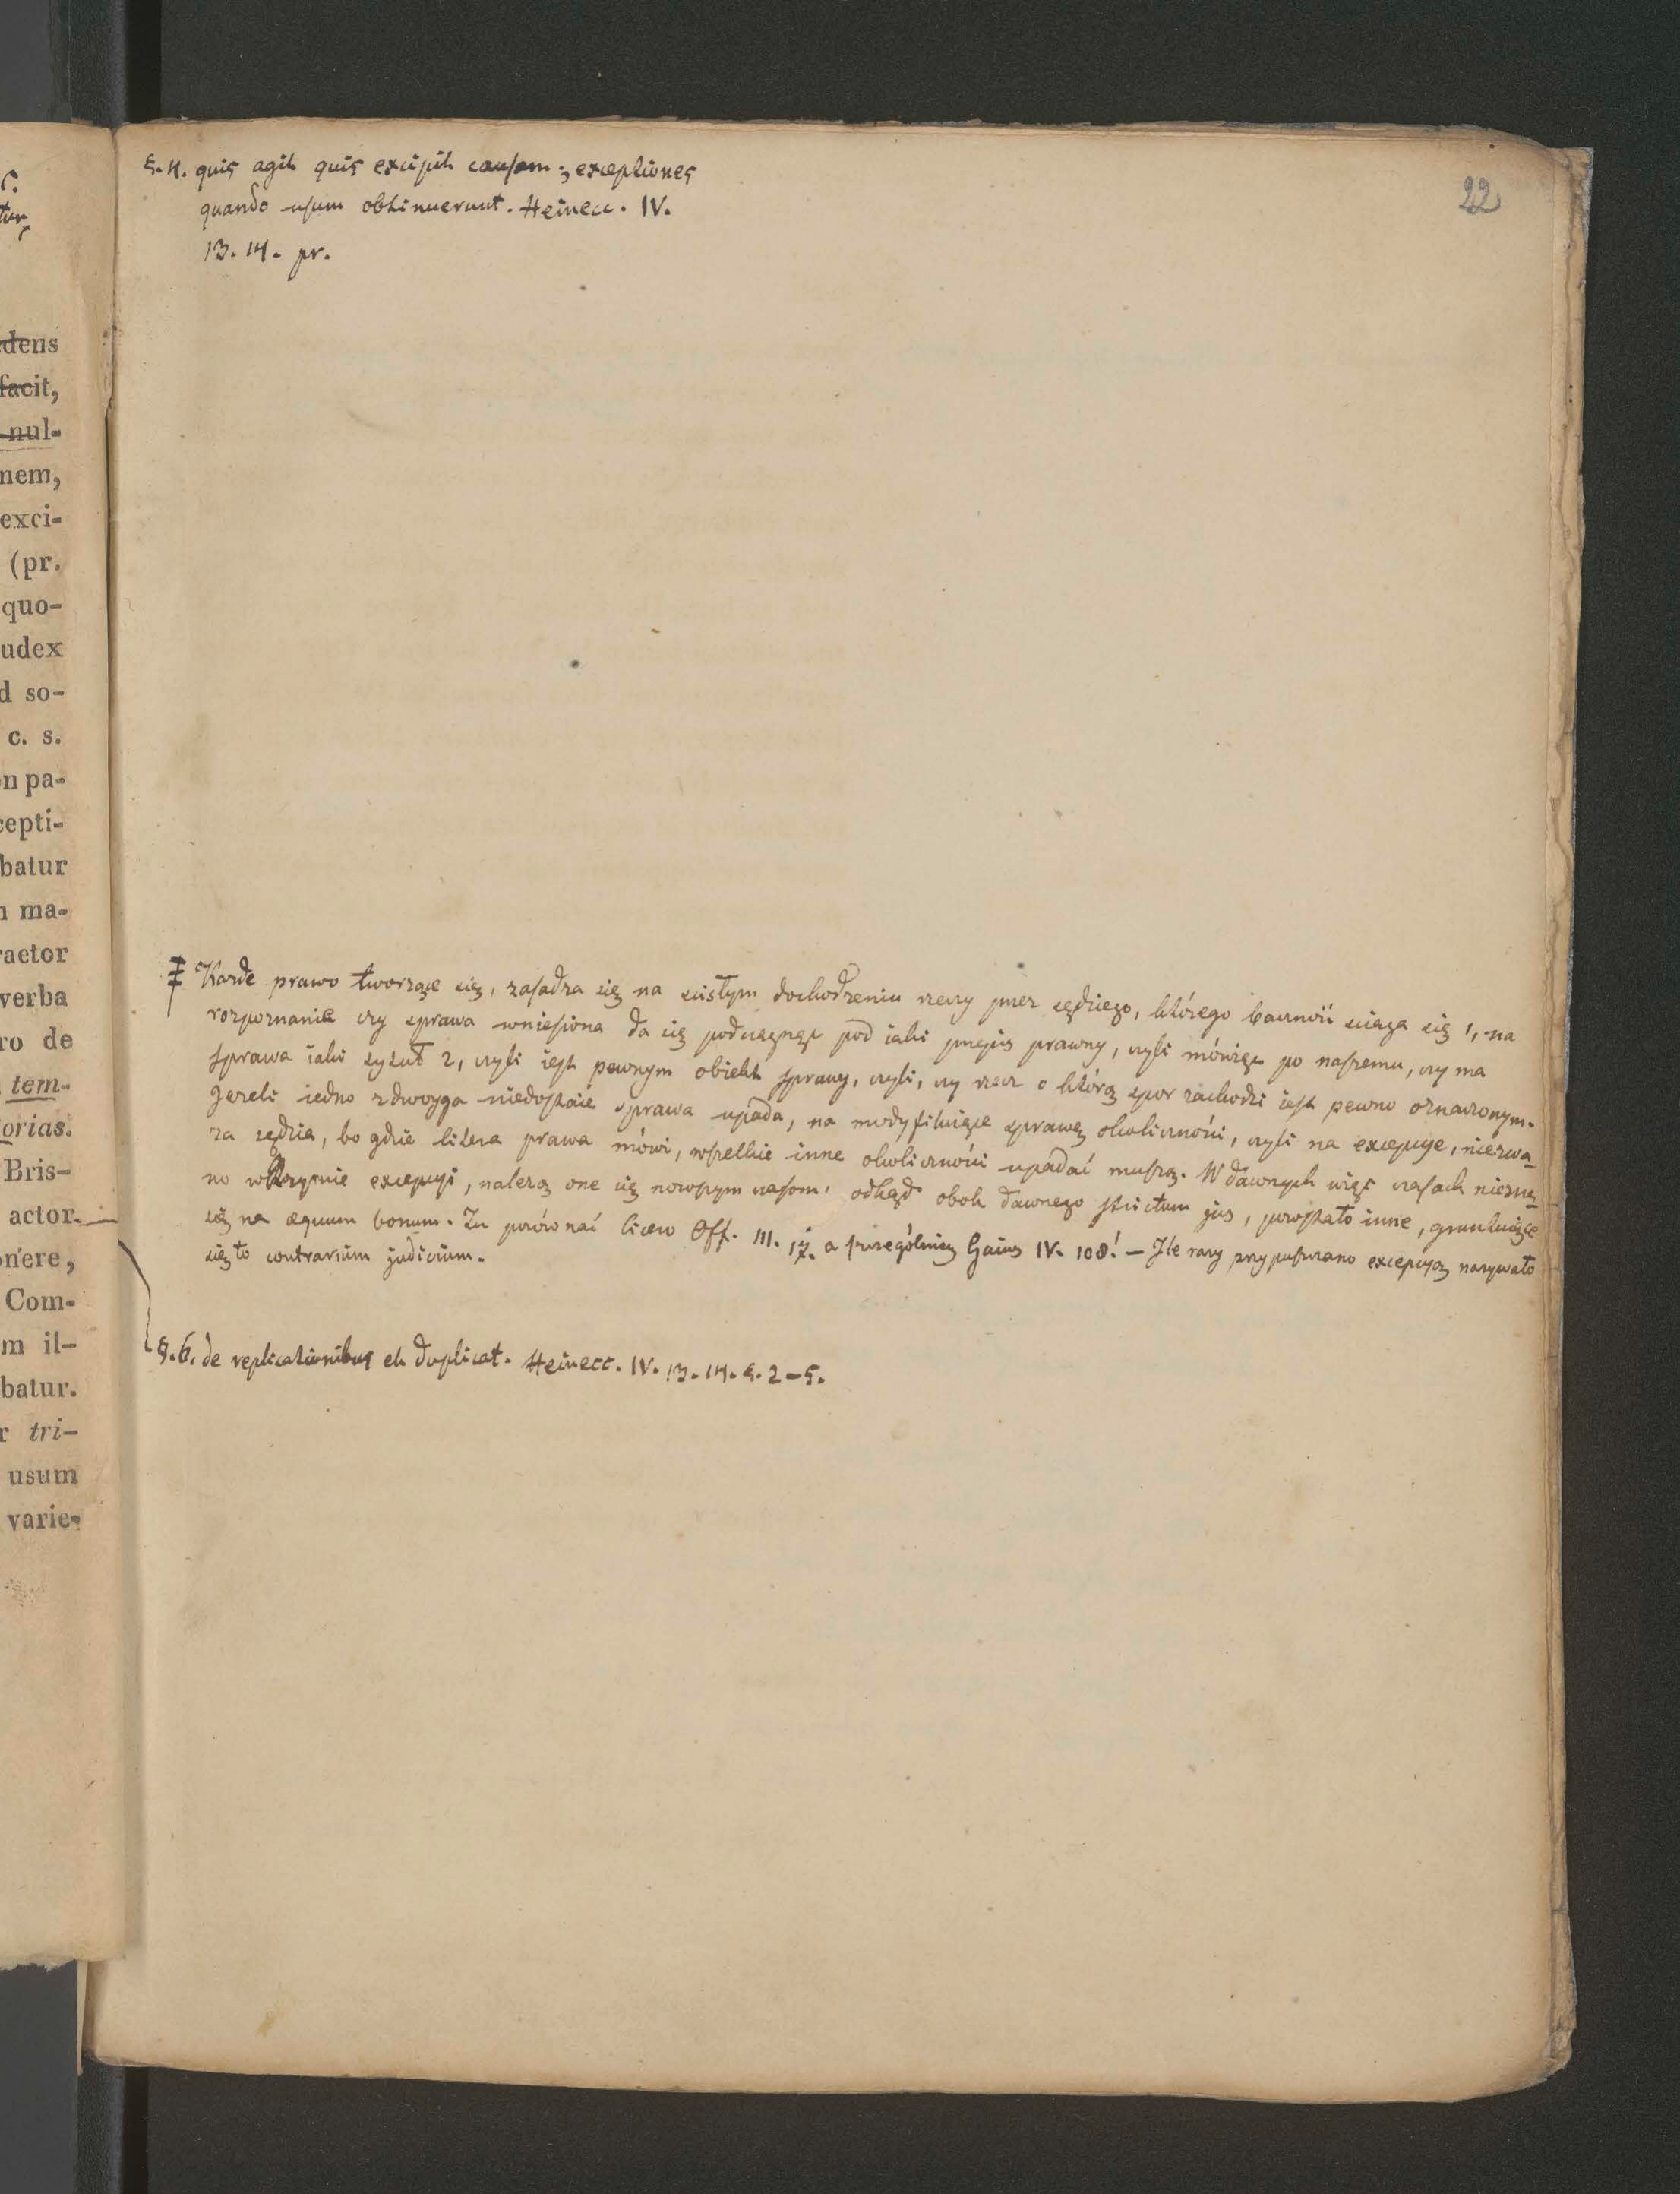 22
§. 4. quis agit quis excipit causam; exceptiones
quando usum obtinuerunt. Heinecc. IV.
13. 14. pr.
Każde prawo tworzące się, zasadza się na scisłym dochodzeniu rzeczy przez sędziego, którego bacznośc sciąga się 1, na
rozpoznanie czy sprawa wniesiona da się podciągnąc pod iaki przepis prawny, czyli mówiąc po naszemu, czy ma
sprawa iaki tytuł 2, czyli iest pewnym obiekt sprawy, czyli, czy rzecz o którą spor zachodzi iest pewno oznaczonym.
Jezeli iedno z dwoyga niedostaie sprawa upada, na modyfikuiące sprawę okoliczności, czyli na excepcye, niezwa-
za sędzia, bo gdzie litera prawa mówi, wszelkie inne okoliczności upadać muszą. W dawnych więc czasach niezna-
no w Rzymie excepcyi, należą one się nowszym czasom. odtąd obok dawnego strictum jus, powstało inne, gruntuiące
się na æquum bonum. Zu porównać Cicero Off. III. 17. a szczególniey Gaius IV. 108! — Ile razy przypuszczano excepcyą nazywało
się to contrarium judicium.
§. 6. de replicationibus et duplicat. Heinecc. IV. 13. 14. §. 2–5.
dens
facit,
nul-
nem,
exci-
(pr.
quo-
udex
d so-
c. s.
n pa-
cepti-
batur
ma-
raetor
verba
ro de
tem-
orias.
Bris-
actor.
onere,
Com-
m il-
batur.
r tri-
usum
varie-